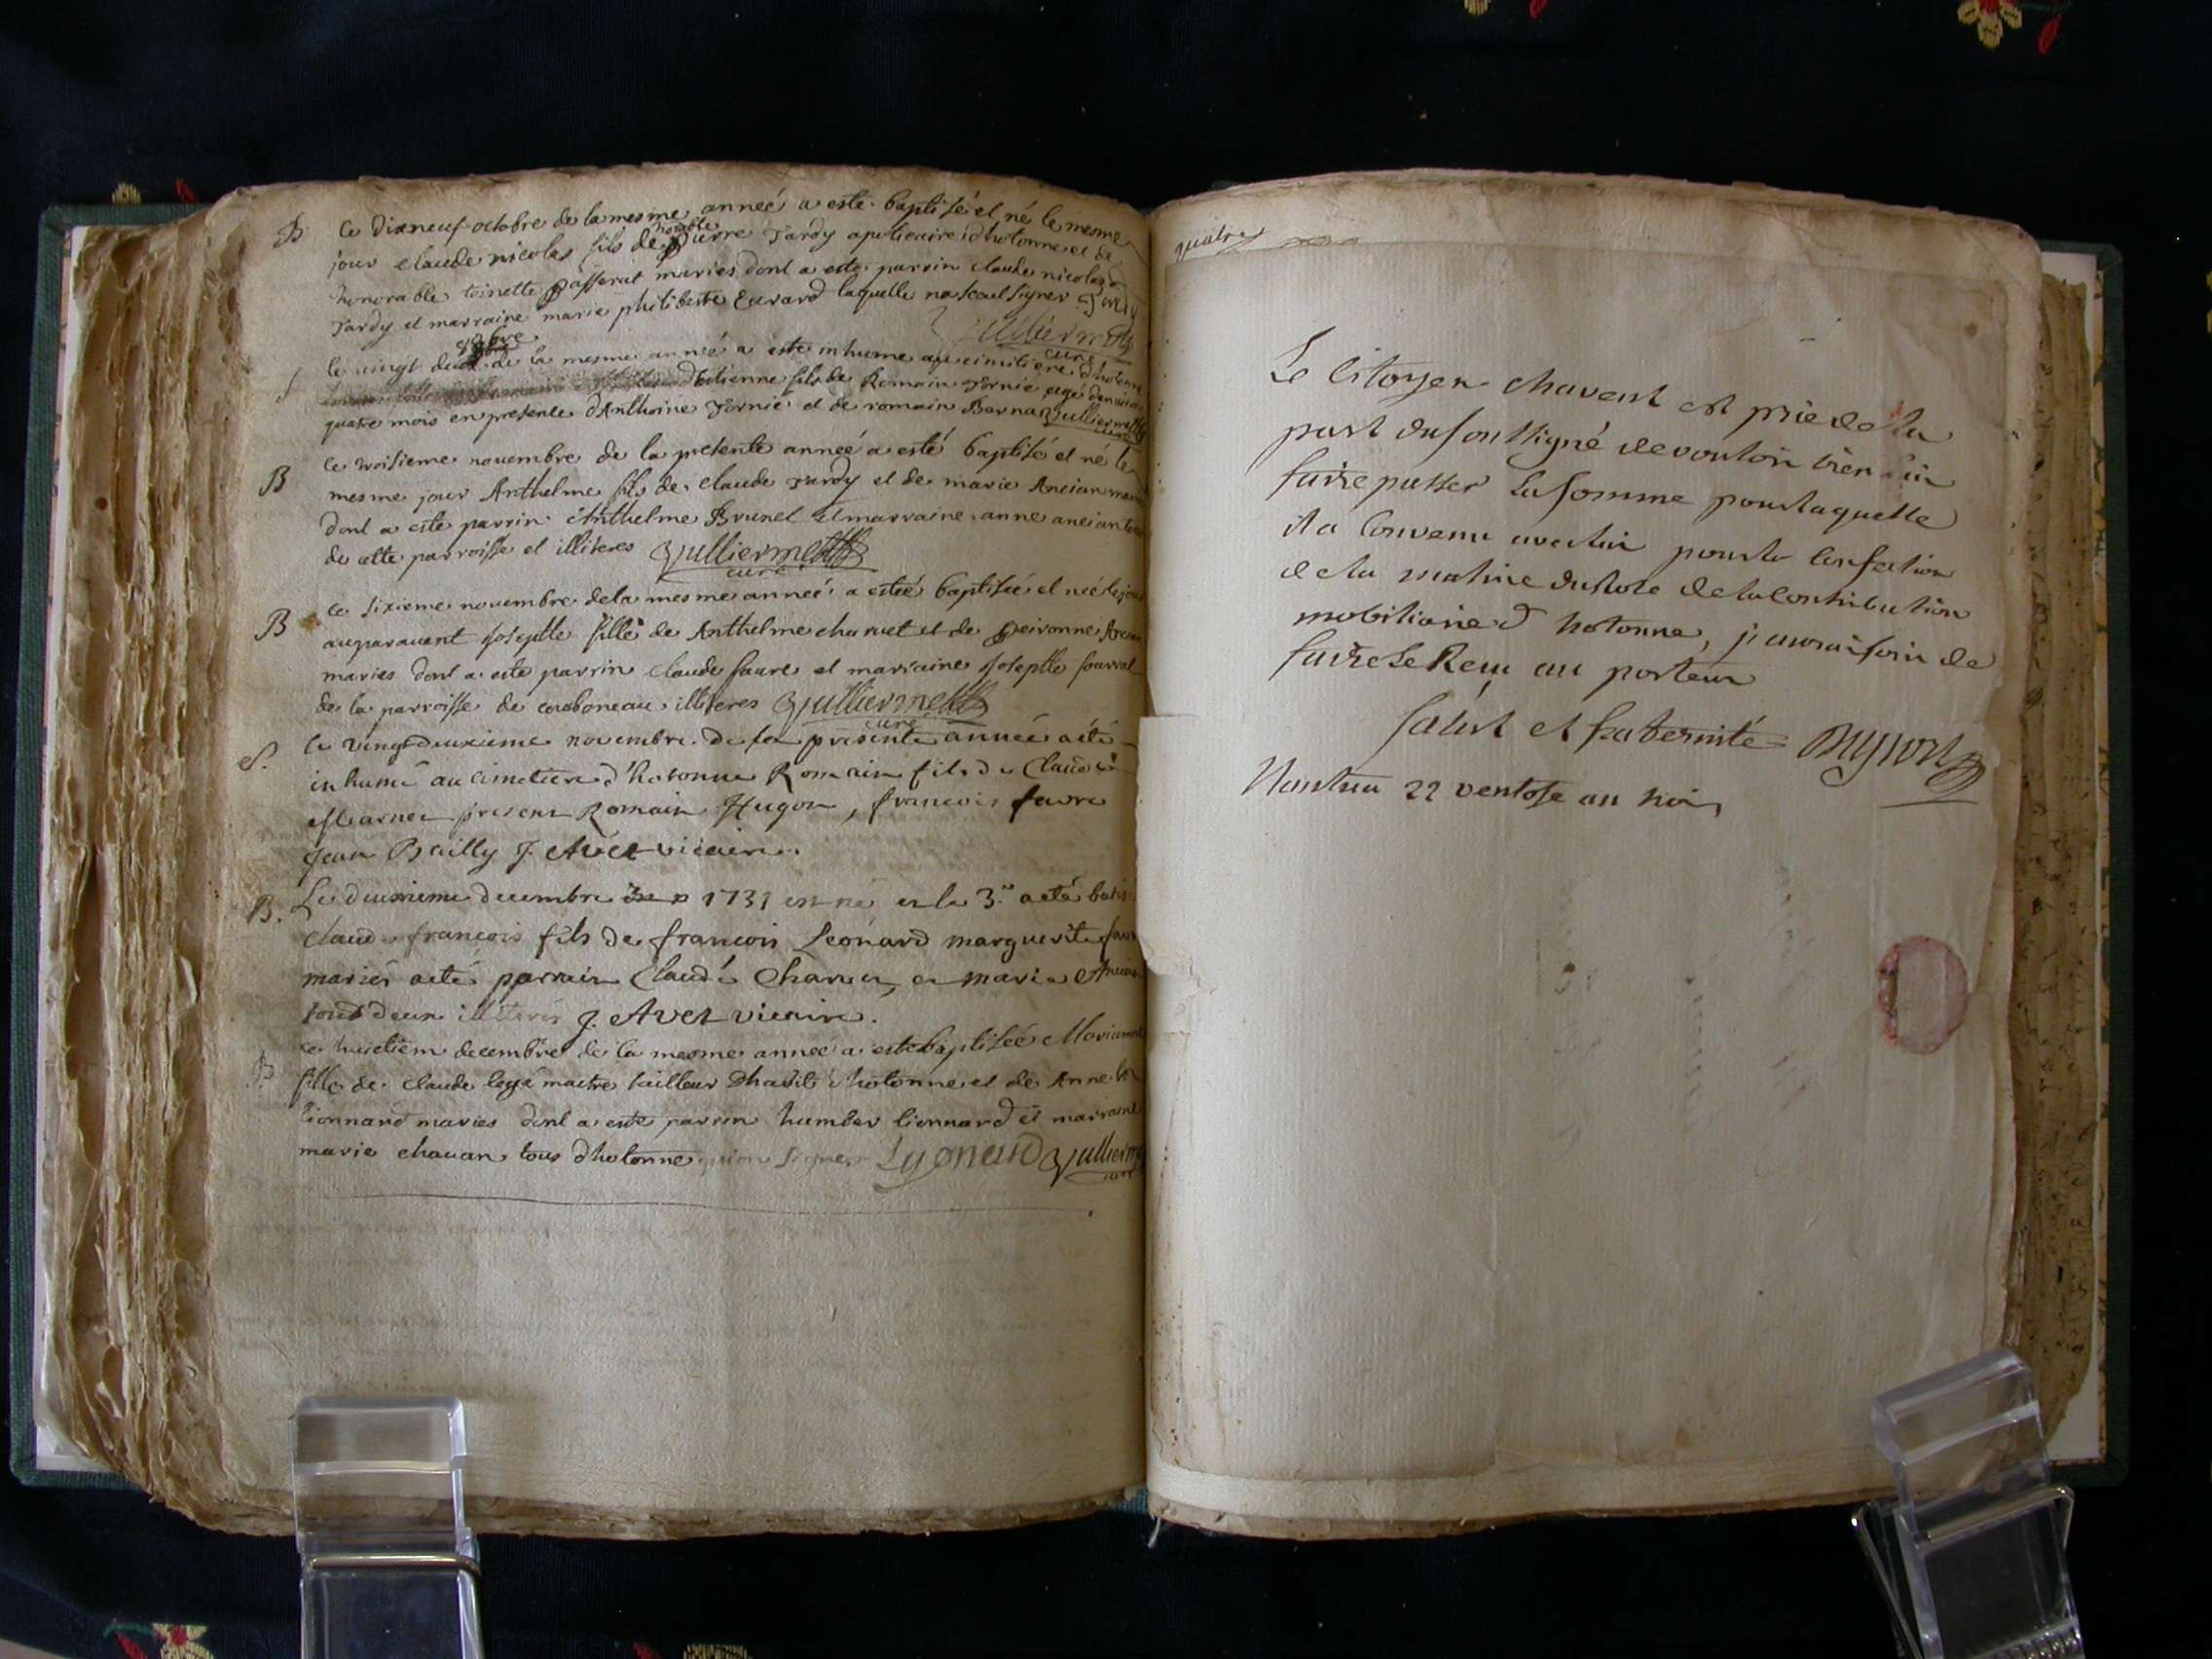 B ce dixneuf octobre de la mesme anneé a esté baptisé et né le mesme
jour claude nicolas fils de honorable pierre Tardy apoticaire dhotonne et de
honorable toinette passerat maries dont a este parrin claude nicolas
Tardy et marraine marie philiberte Evrard laquelle na sceu signer Tardy
Gulliermette
curé
S le vingt deux 8bre de la mesme anneé a esté inhumé au cimitiere dhotonne
dEstienne fils de Romain Fornie agé denviron
quatre mois en presence dAnthoine Fornie et de romain Berna Gulliermette
curé
B ce troisieme novembre de la presente anneé a esté baptisé et né le
mesme jour Anthelme fils de claude Tardy et de marie Ancian maries
dont a este parrin Anthelme Brunel et marraine anne ancian tous
de cette parroisse et illiteres Gulliermette
curé
B ce sixieme novembre de la mesme anneé a estée baptisée et née le jour
auparavent Josephte fille de Anthelme charuet et de peironne Ancian
maries dont a este parrin claude faure et marraine Josephte
de la parroisse de illiteres Gulliermette
curé
S. le vingtdeuxieme novembre de la presente année a été
inhumé au cimetiere d'hotonne Romain fils de Claude
presens Romain Hugon, francois favre
Jean Bailly J. Avet vicaire.
B. Le deuxieme decembre 1731 est né et le 3.e a eté batisé
claude francois fils de francois Leonard marguerite favre
mariés a eté parrain Claude Charuet et marie Ancian
tous deux illiterés J. Avet vicaire.
B ce huictiem decembre de la mesme anneé a esté baptisée Marianne
fille de claude legé maitre tailleur dhabit dhotonne et de Anne
lionnard maries dont a este parrin humber lionnard et marraine
marie chavan tous dhotonne signer Lyonard Gulliermette
curé
quatre
Le Citoyen chavent est prié de la
part du soussigné de vouloir bien lui
faire passer la somme pour laquelle
il a convenu avec lui pour la confection
de la matrice du role de la Contribution
mobiliaire d hotonne, j'aurai soin de
faire le Reçu au porteur
salut et fraternité
Nantua 22 ventose an trois